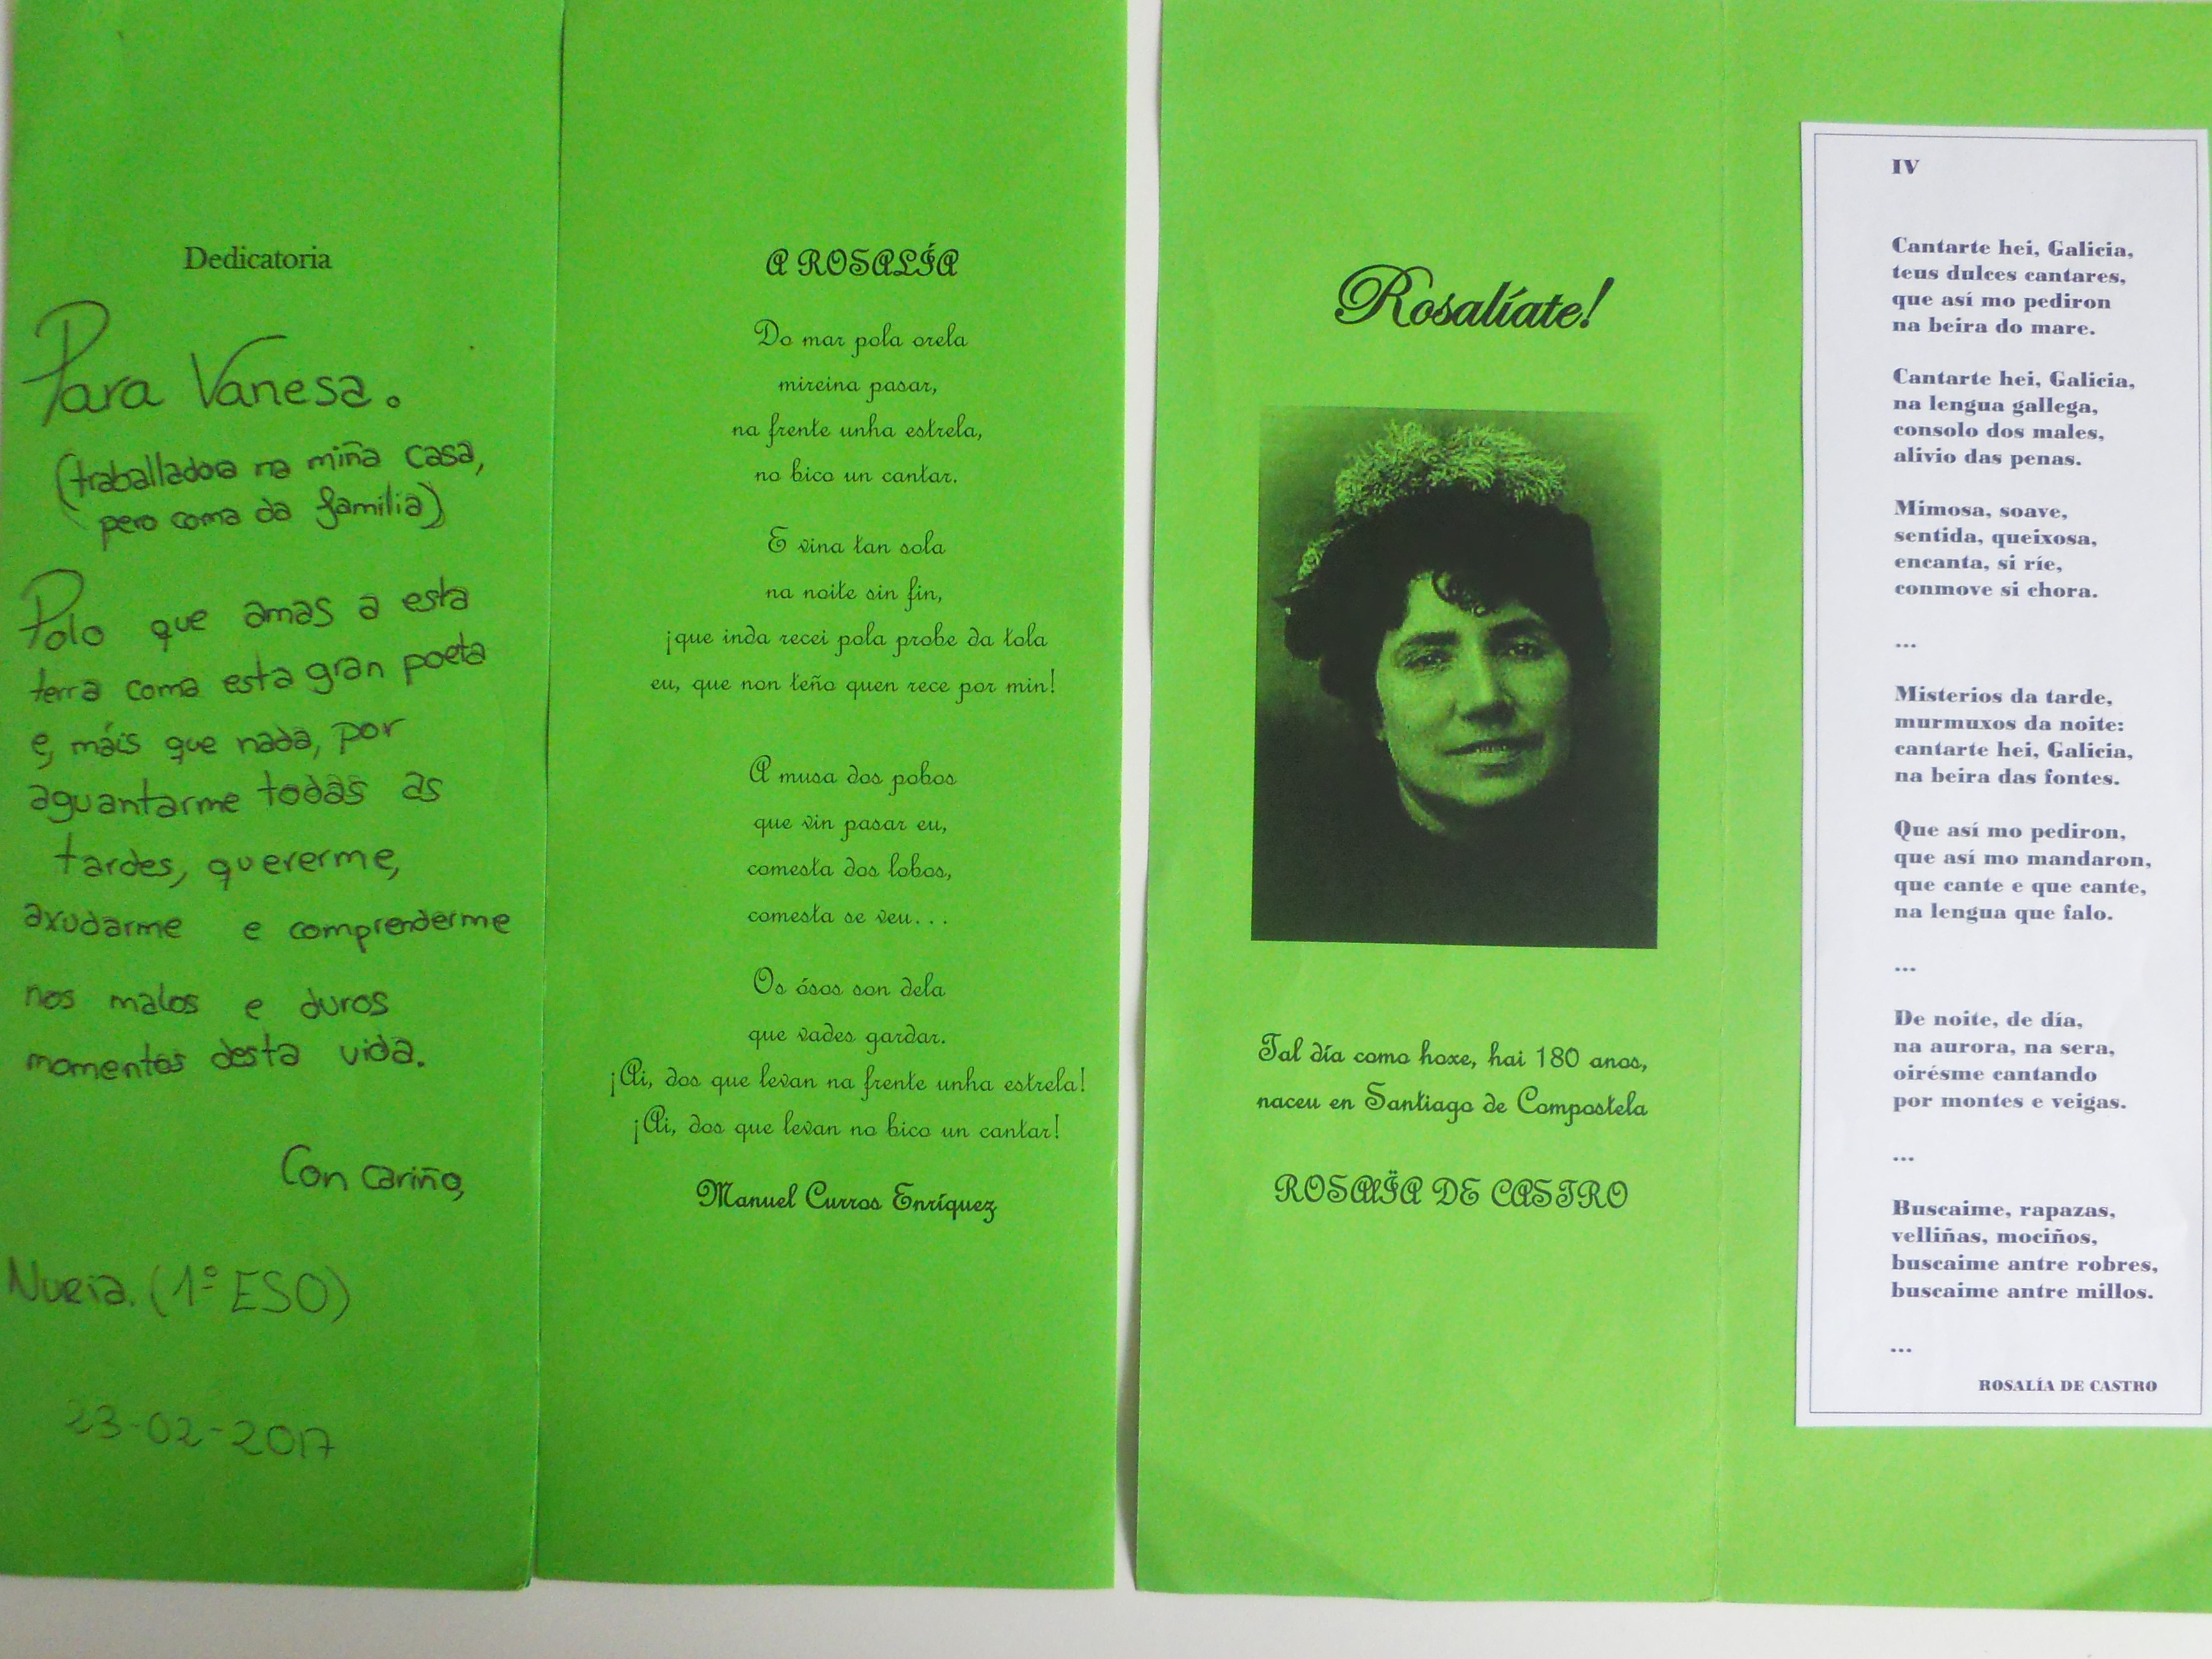 Dedicatoria
Para Vanesa.
(traballadora na miña casa,
pero coma da familia)
Polo que amas a esta
terra coma esta gran poeta
e, máis que nada, por
aguantarme todas as
tardes, quererme,
axudarme e comprenderme
nos malos e duros
momentos desta vida.
Con cariño,
Nuria. (1º ESO)
23-02-2017
A ROSALÍA
Do mar pola orela
mireina pasar,
na frente unha estrela,
no bico un cantar.
E vina tan sola
na noite sin fin,
¡que inda recei pola probe da tola
eu, que non teño quen rece por min!
A musa dos pobos
que vin pasar eu,
comesta dos lobos,
comesta se veu...
Os ósos son dela
que vades gardar.
¡Ai, dos que levan na frente unha estrela!
¡Ai, dos que levan no bico un cantar!
Manuel Curros Enríquez
Rosalíate!
Tal día como hoxe, hai 180 anos,
naceu en Santiago de Compostela
ROSALÏA DE CASTRO
IV
Cantarte hei, Galicia,
teus dulces cantares,
que así mo pediron
na beira do mare.
Cantarte hei, Galicia,
na lengua gallega,
consolo dos males,
alivio das penas.
Mimosa, soave,
sentida, queixosa,
encanta, si ríe,
conmove si chora.
...
Misterios da tarde,
murmuxos da noite:
cantarte hei, Galicia,
na beira das fontes.
Que así mo pediron,
que así mo mandaron,
que cante e que cante,
na lengua que falo.
...
De noite, de día,
na aurora, na sera,
oirésme cantando
por montes e veigas.
...
Buscaime, rapazas,
velliñas, mociños,
buscaime antre robres,
buscaime antre millos.
...
ROSALÍA DE CASTRO